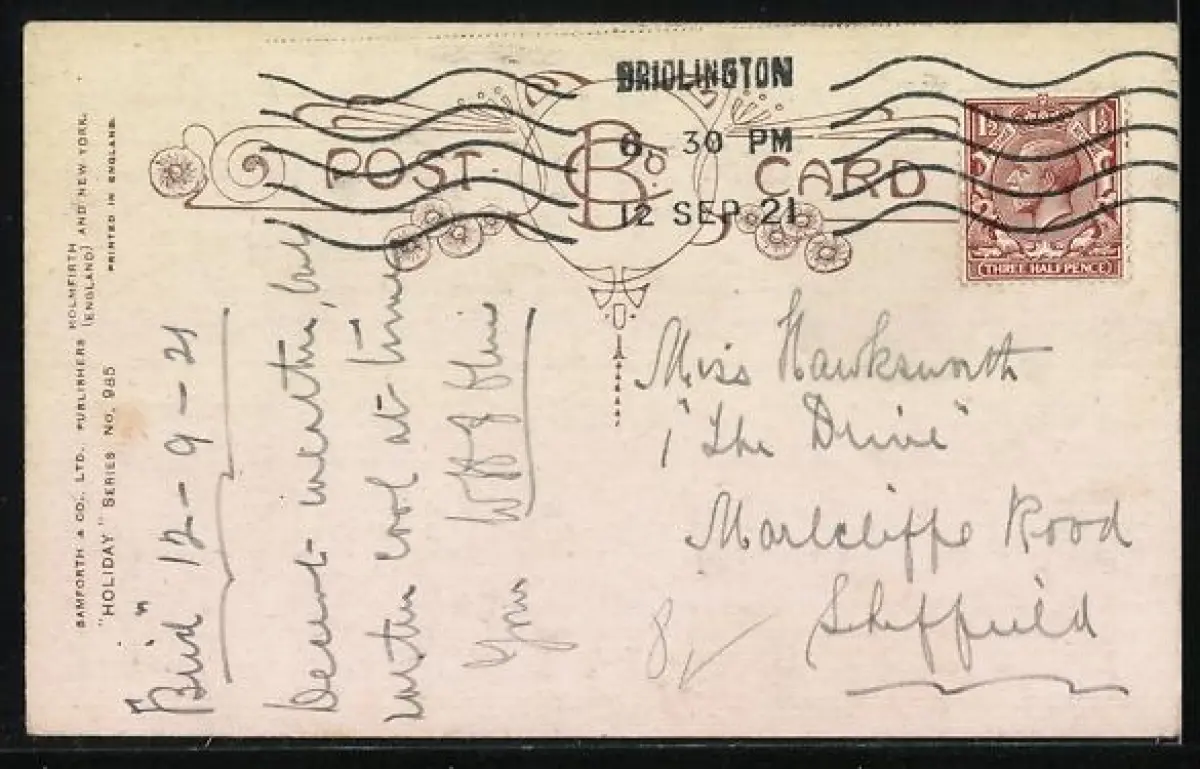 BAMFORTH & CO., LTD. PUBLISHERS HOLMFIRTH (ENGLAND) AND NEW YORK.
"HOLIDAY" SERIES NO. 985 PRINTED IN ENGLAND.
POST B Co. CARD
BRIDLINGTON
6. 30 PM
12 SEP 21
1½ 1½
THREE HALFPENCE
"Brid" 12-9-21
Decent weather, but
rather cool at times
Yours
Miss Hawksworth
1 "The Drive"
Marlcliffe Road
Sheffield
8